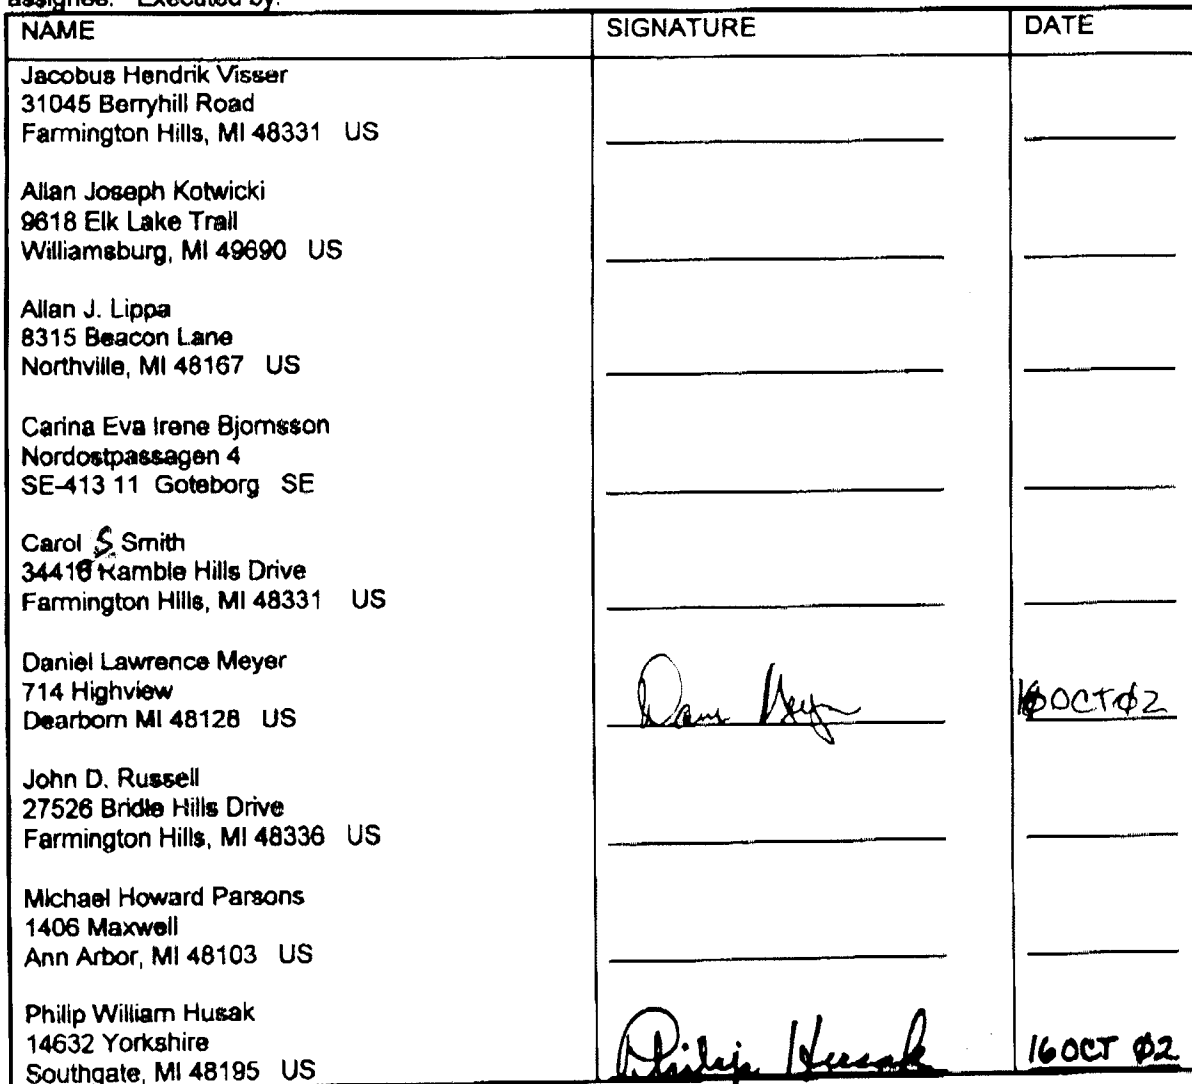 assignee. Executed by:
NAME SIGNATURE DATE
Jacobus Hendrik Visser
31045 Berryhill Road
Farmington Hills, MI 48331 US
Allan Joseph Kotwicki
9618 Elk Lake Trail
Williamsburg, MI 49690 US
Allan J. Lippa
8315 Beacon Lane
Northville, MI 48167 US
Carina Eva Irene Bjornsson
Nordostpassagen 4
SE-413 11 Goteborg SE
Carol S Smith
34416 Ramble Hills Drive
Farmington Hills, MI 48331 US
Daniel Lawrence Meyer
714 Highview
Dearborn MI 48128 US OCT 02
John D. Russell
27526 Bridle Hills Drive
Farmington Hills, MI 48336 US
Michael Howard Parsons
1406 Maxwell
Ann Arbor, MI 48103 US
Philip William Husak
14632 Yorkshire
Southgate, MI 48195 US Philip Husak 16 OCT 02